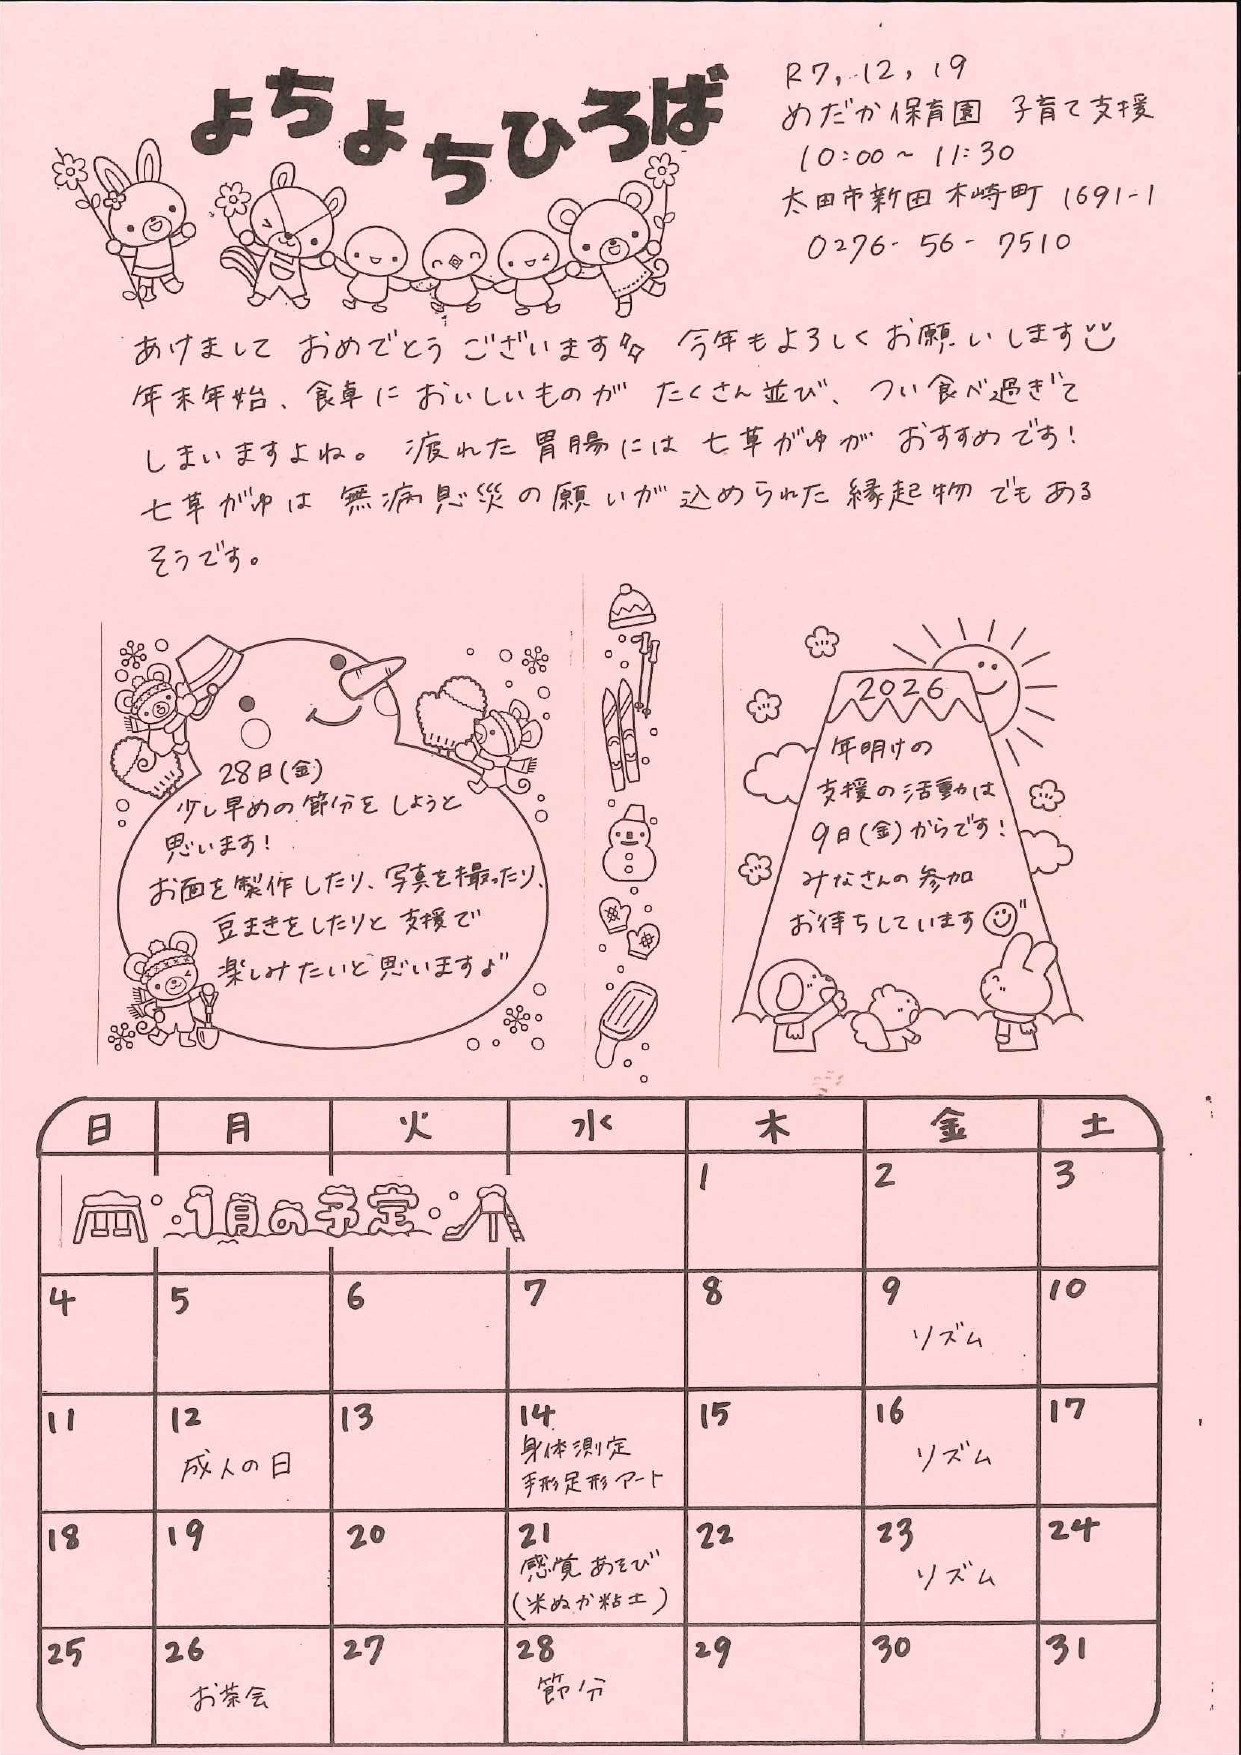 よちよちひろば
R7, 12, 19
めだか保育園 子育て支援
10:00~11:30
太田市新田木崎町 1691-1
0276-56-7510
あけまして おめでとう ございます 今年もよろしくお願いします
年末年始、食卓に おいしいものが たくさん並び、つい食べ過ぎて
しまいますよね。 疲れた胃腸には七草がゆが おすすめです!
七草がゆは無病息災の願いが込められた縁起物でもある
そうです。
28日(金)
少し早めの節分をしようと
思います!
お面を製作したり、写真を撮ったり、
豆まきをしたりと支援で
楽しみたいと思います♪
2026
年明けの
支援の活動は
9日(金)からです!
みなさんの参加
お待ちしています
日 月 火 水 木 金 土
1月の予定
1 2 3
4 5 6 7 8 9 10
リズム
11 12 13 14 15 16 17
成人の日
身体測定
手形足形アート
リズム
18 19 20 21 22 23 24
感覚あそび
(米ぬか粘土)
リズム
25 26 27 28 29 30 31
お茶会
節分